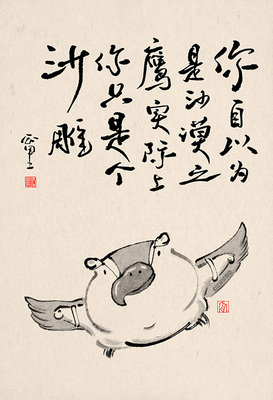 你自以为
是沙漠之
鹰实际上
你只是个
沙雕